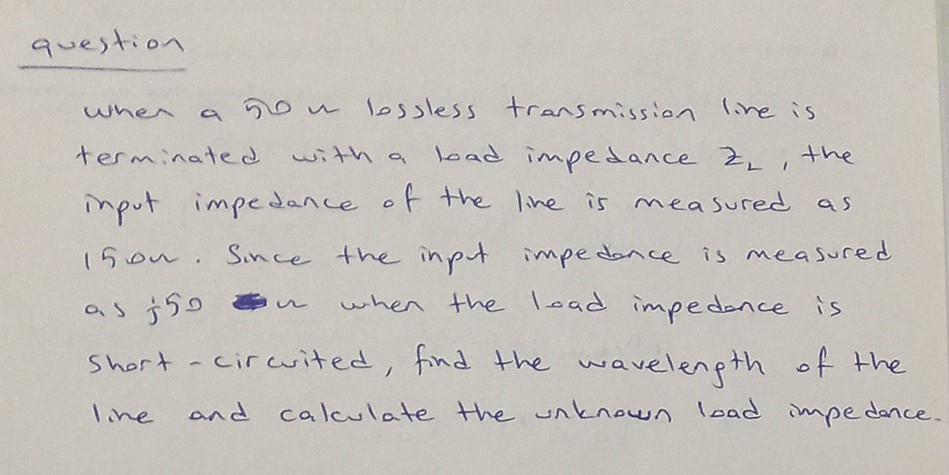 question
when a 50 Ω lossless transmission line is
terminated with a load impedance Z_L, the
input impedance of the line is measured as
150Ω. Since the input impedance is measured
as j50 Ω when the load impedance is
short-circuited, find the wavelength of the
line and calculate the unknown load impedance.